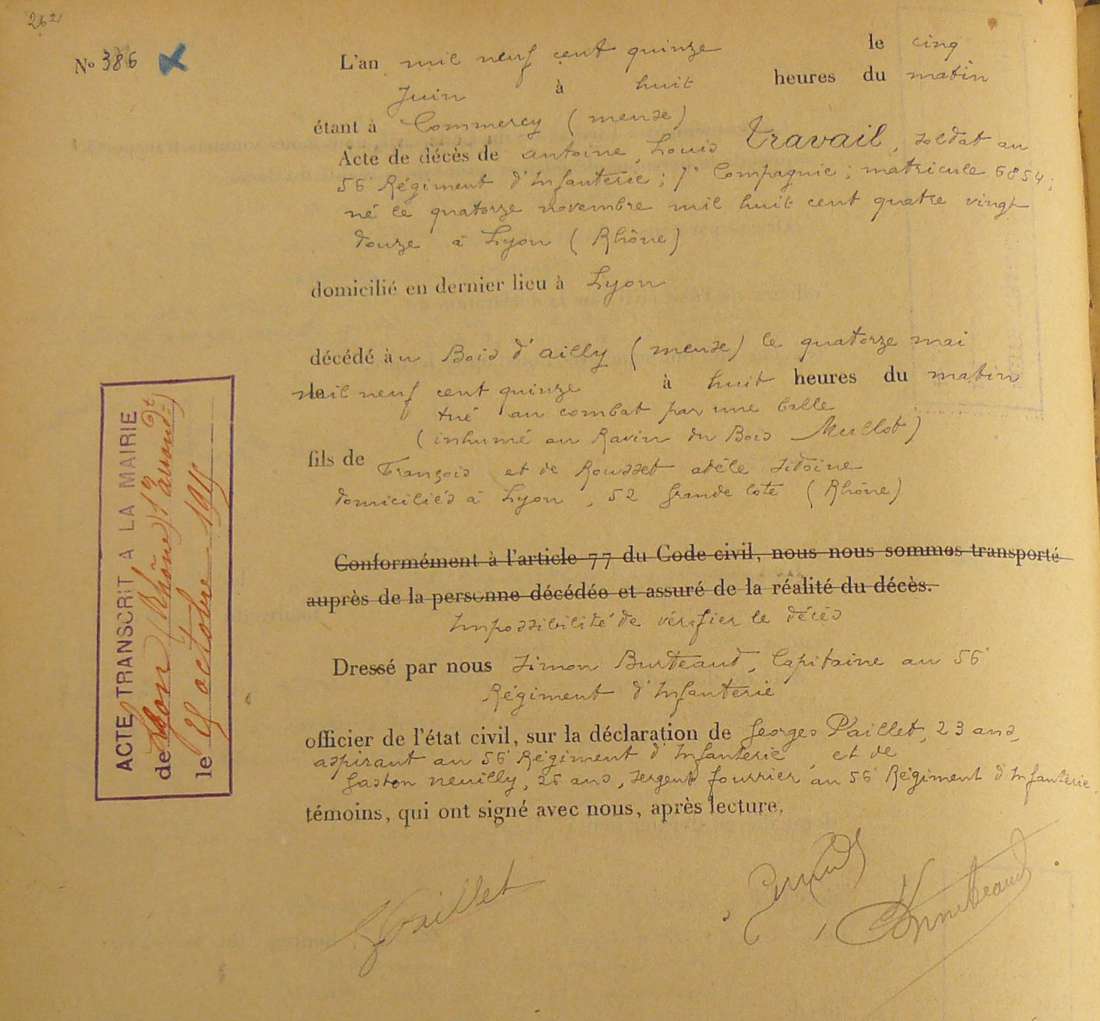 262
N° 386
L'an mil neuf cent quinze le cinq
Juin à huit heures du matin
étant à Commercy (meuse)
Acte de décès de antoine, Louis Travail, soldat au
56e Régiment d'Infanterie; 7e Compagnie; matricule 6854;
né le quatorze novembre mil huit cent quatre vingt
douze à Lyon (Rhône)
domicilié en dernier lieu à Lyon
décédé au Bois d'ailly (meuse) le quatorze mai
mil neuf cent quinze à huit heures du matin
tué au combat par une balle
(inhumé au Ravin du Bois Mullot)
fils de François et de Rousset adèle sidoine
domiciliés à Lyon, 52 grande cote (Rhône)
Conformément à l'article 77 du Code civil, nous nous sommes transporté
auprès de la personne décédée et assuré de la réalité du décès.
Impossibilité de vérifier le décès
Dressé par nous Simon Burteaud, Capitaine au 56e
Régiment d'Infanterie
officier de l'état civil, sur la déclaration de Georges Paillet, 23 ans,
aspirant au 56e Régiment d'Infanterie, et de
Gaston neuilly, 25 ans, sergent fourrier au 56e Régiment d'Infanterie.
témoins, qui ont signé avec nous, après lecture.
GPaillet
ACTE TRANSCRIT A LA MAIRIE
de Lyon (Rhône) 1er arrondt
le 25 octobre 1915